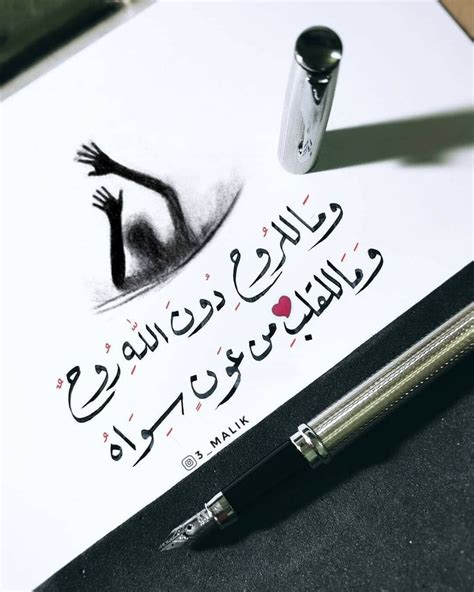 وَمَا للرُوحِ دُونَ اللّٰهِ رُوحٌ
وَمَا للقلبِ من عَونٍ سِوَاهُ
@3_MALIK